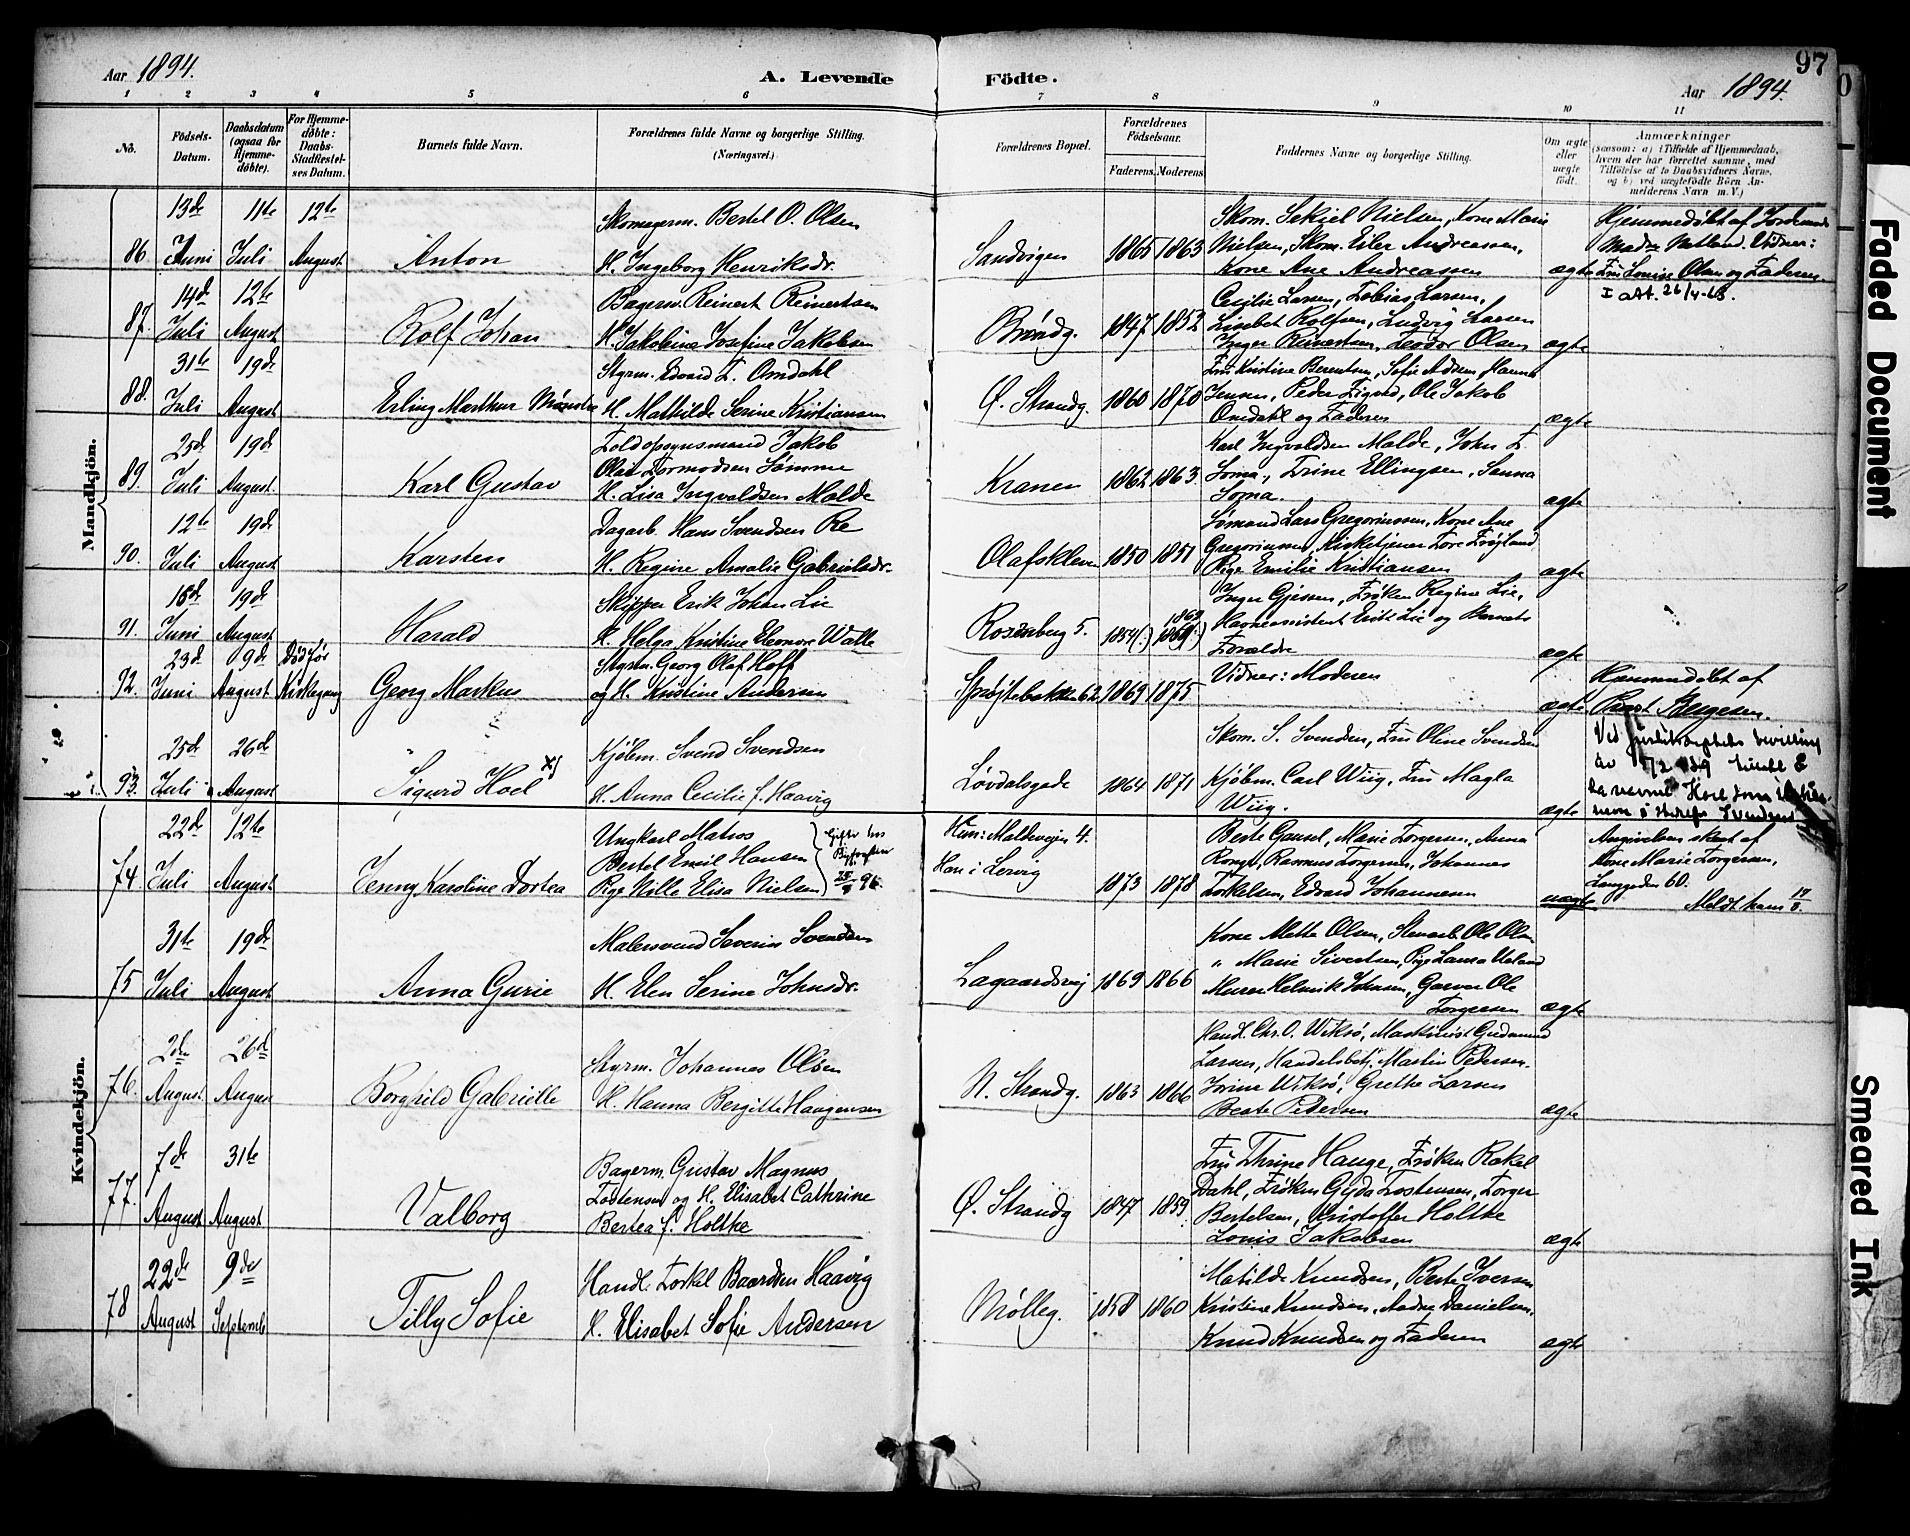 97
Aar 1894.
A. Levende Födte.
Aar 1894.
1 2 3 4 5 6 7 8 9 10 11
No.
Födsels-Datum.
Daabsdatum (ogsaa for Hjemmedöbte).
For Hjemmedöbte: Daabs-Stadfæstelses Datum.
Barnets fulde Navn.
Forældrenes fulde Navne og borgerlige Stilling. (Næringsvei.)
Forældrenes Bopæl.
Forældrenes Födselsaar.
Faderens. Moderens.
Faddernes Navne og borgerlige Stilling.
Om ægte eller uægte födt.
Anmærkninger
(saasom: a) i Tilfælde af Hjemmedaab, hvem der har forrettet samme, med Tilföielse af to Daabsvidners Navne, og b) ved uægtefödte Börn Anmelderens Navn m. V.)
Mandkjön.
86 13de Juni 11te Juli 12te August
Anton
Skomagerm. Bertel O. Olsen
H. Ingeborg Henriksdr.
Sandvigen 1865 1863
Skom. Nielsen, Kone Marie
Nielsen, Skom. Eiler Andreassen,
Kone Ane Andreassen
ægte
Hjemmedöbt af Jordemor
Mad. Netland. Vidner:
Fru Louise Olsen og Faderen.
87. 14de Juli 12te August
I att. 26/4-63.
Rolf Johan
Bagersv. Reinert Reinertsen
H. Jakobine Josefine Jakobsen
Bröndg. 1847 1852
Cecilie Larsen, Tobias Larsen,
Lisebet Rolfsen, Ludvig Larsen
Inger Reinertsen, Olsen
ægte
88. 31te Juli 19de August
Erling Marthur
Styrm. Edvard T. Omdahl
H. Mathilde Serine Kristiansen
Ø. Strandg. 1860 1870
Fru Kristine Berentsen, Sofie Hanna
Jensen, Peder Sigved, Ole Jakob
Omdahl og Faderen
ægte
89. 25de Juli 19de August
Karl Gustav
Toldopsynsmand Jakob
Olai Tormodsen Sömme
H. Lisa Ingvaldsen Molde
Kranen 1862 1863.
Karl Ingvaldsen Malde, John T.
Soma, Trine Ellingsen, Sanna
Soma.
ægte
90. 12te Juli 19de August
Karsten
Dagarb. Hans Svendsen Re
H. Regine Amalie Gabrielsdr.
Olafskleven 1850 1851
Sömand Lars Gregoriussen, Kone Ane
Gregoriussen, Kirketjener Tore Fröyland
Pige Emilie Kristiansen
ægte
91. Juni 19de August
Harald
Skipper Erik Johan Lie
H. Helga Kristine Eleonore Walle
Rosenberg 5. 1854
Inger Gjessen, Fröken Regine Lie,
Havneassistent Erik Lie og Barnets
Forældre
ægte
92. 23de Juni 9de August Död för Kirkegang
Georg Markus
Styrm. Georg Olaf Hoff
og H. Kristine Andersen
Spröjtebakken 62 1869 1875
Vidner: Moderen
ægte
Hjemmedöbt af
93. 25de Juli 26de August
Sigurd Hoel x)
Kjöbm. Svend Svendsen
H. Anna Cecilie f. Haavig
Lövdalsgade 1864 1871
Skom. S. Svendsen, Fru Oline Svendsen
Kjöbm. Carl Wiig, Fru Magla
Wiig.
ægte
Kvindekjön.
74 22de Juli 12te August
Jenny Karoline Dortea
Ungkarl Matros
Bertel Emil Hansen
Pige Nille Elisa Nielsen
Gifte hos 96.
Hun: Maldevejen 4.
Han i Lervig
1873 1878
Berte Gausel, Marie Torgersen, Anna
Ronge, Rasmus Torgersen, Johannes
Torkelsen, Edvard Johannesen
uægte
Angivelsen skeet af
Kone Marie Torgersen,
Langgaden 60.
Meldt ham 17/8.
75 31te Juli 19de August
Anna Gurie
Malersvend Severin Svendsen
H. Elen Serine Johnsdr.
Lagaardsvej 1869 1866
Kone Mette Olsen, Stenarb. Ole Olsen
" Marie Sivertsen, Pige Laura
Murer Helmik Johnsen, Garver Ole
Torgersen
ægte
76. 2den August 26de August
Borghild Gabrielle
Styrm. Johannes Olsen
H. Hanna Bergitte Haagensen
N. Strandg. 1863 1866
Handl. Chr. O. Wiksö, Maskinist Gudmund
Larsen, Handelsbetj. Martin Pedersen.
Jorine Wiksö, Grethe Larsen
Berte Pedersen
ægte
77. 7de August 31te August
Valborg
Bagerm. Gustav Magnus
Tostensen og H. Elisabet Cathrine
Bertea f. Holtke
Ø. Strandg 1847 1859
Fru Thrine Hauge, Fröken Rakel
Dahl, Fröken Gyda Tostensen, Torger
Bertelsen, Kristoffer Holtke
Louis Jakobsen
ægte
78 22de August 9de Septemb
Tilly Sofie
Handl. Torkel Baardsen Haavig
H. Elisabet Sofie Andersen
Mölleg. 1858 1860
Matilde Knudsen, Berte Iversen
Kristine Knudsen, Danielsen.
Knud Knudsen og Faderen
ægte
Faded Document
Smeared Ink